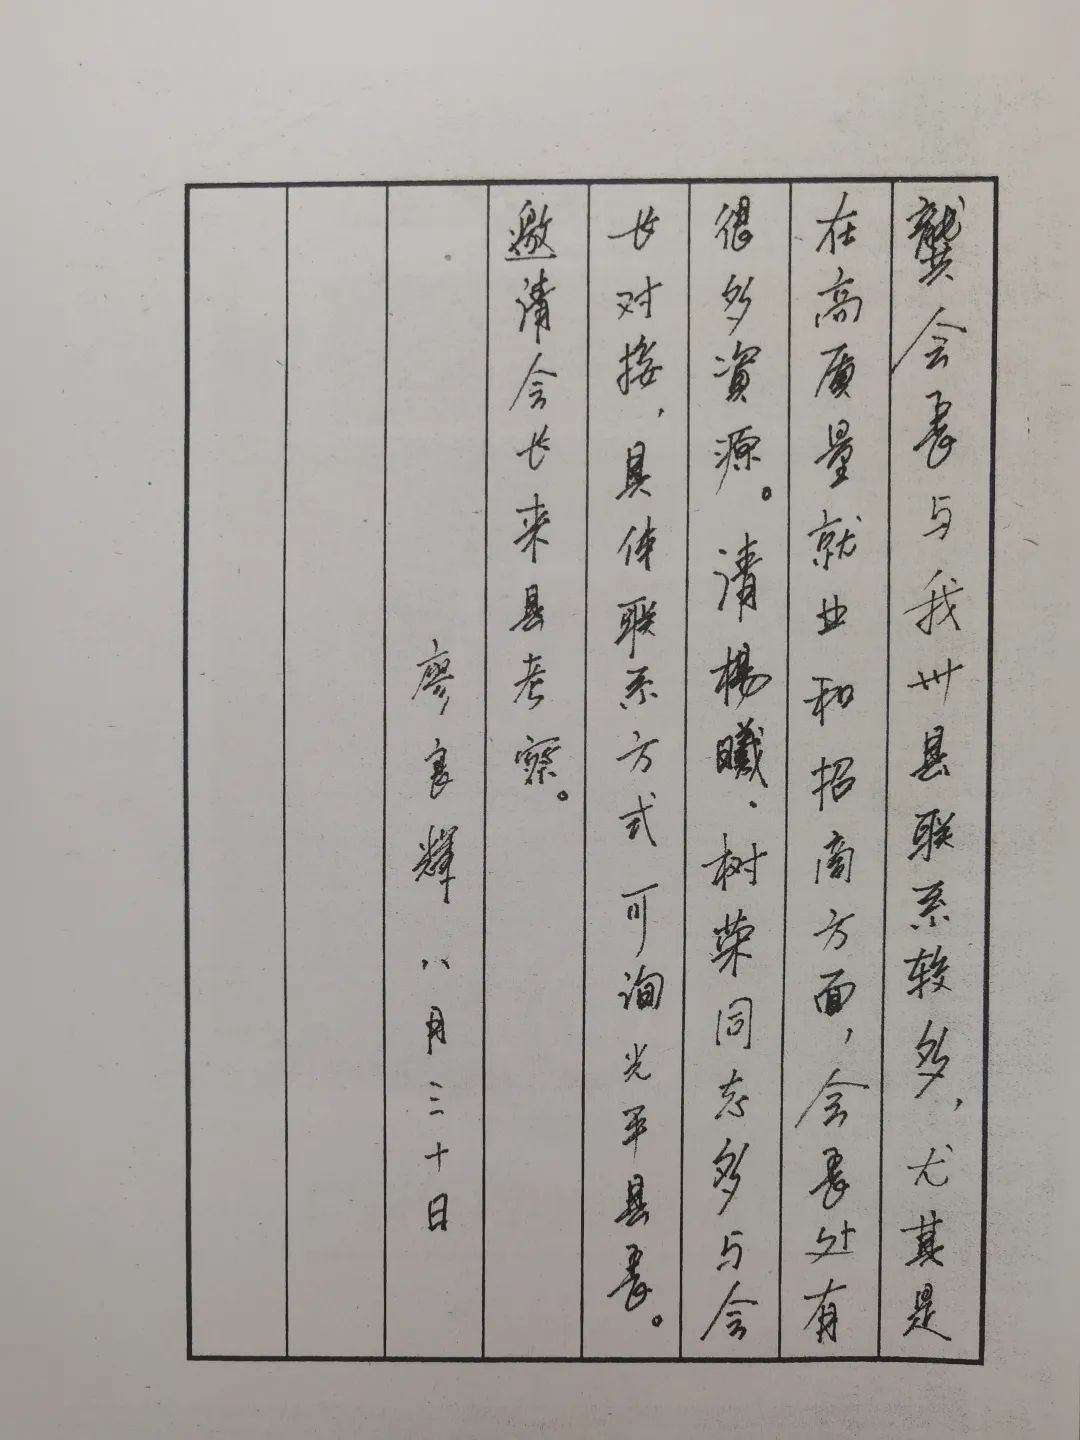 龚会長与我州县联系较多，尤其是
在高质量就业和招商方面，会長处有
很多資源。请楊曦、树荣同志多与会
长对接，具体联系方式可询光平县長。
邀请会长来县考察。
廖良辉 八月三十日